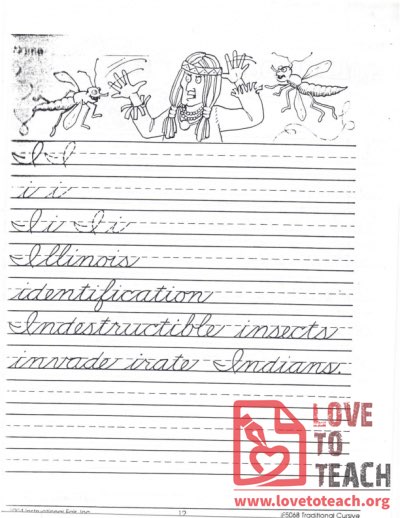 Name
I I
i i
Ii Ii
Illinois
identification
Indestructible insects
invade irate Indians.
LOVE
TO
TEACH
www.lovetoteach.org
Instructional Fair, Inc. 12 IF5068 Traditional Cursive